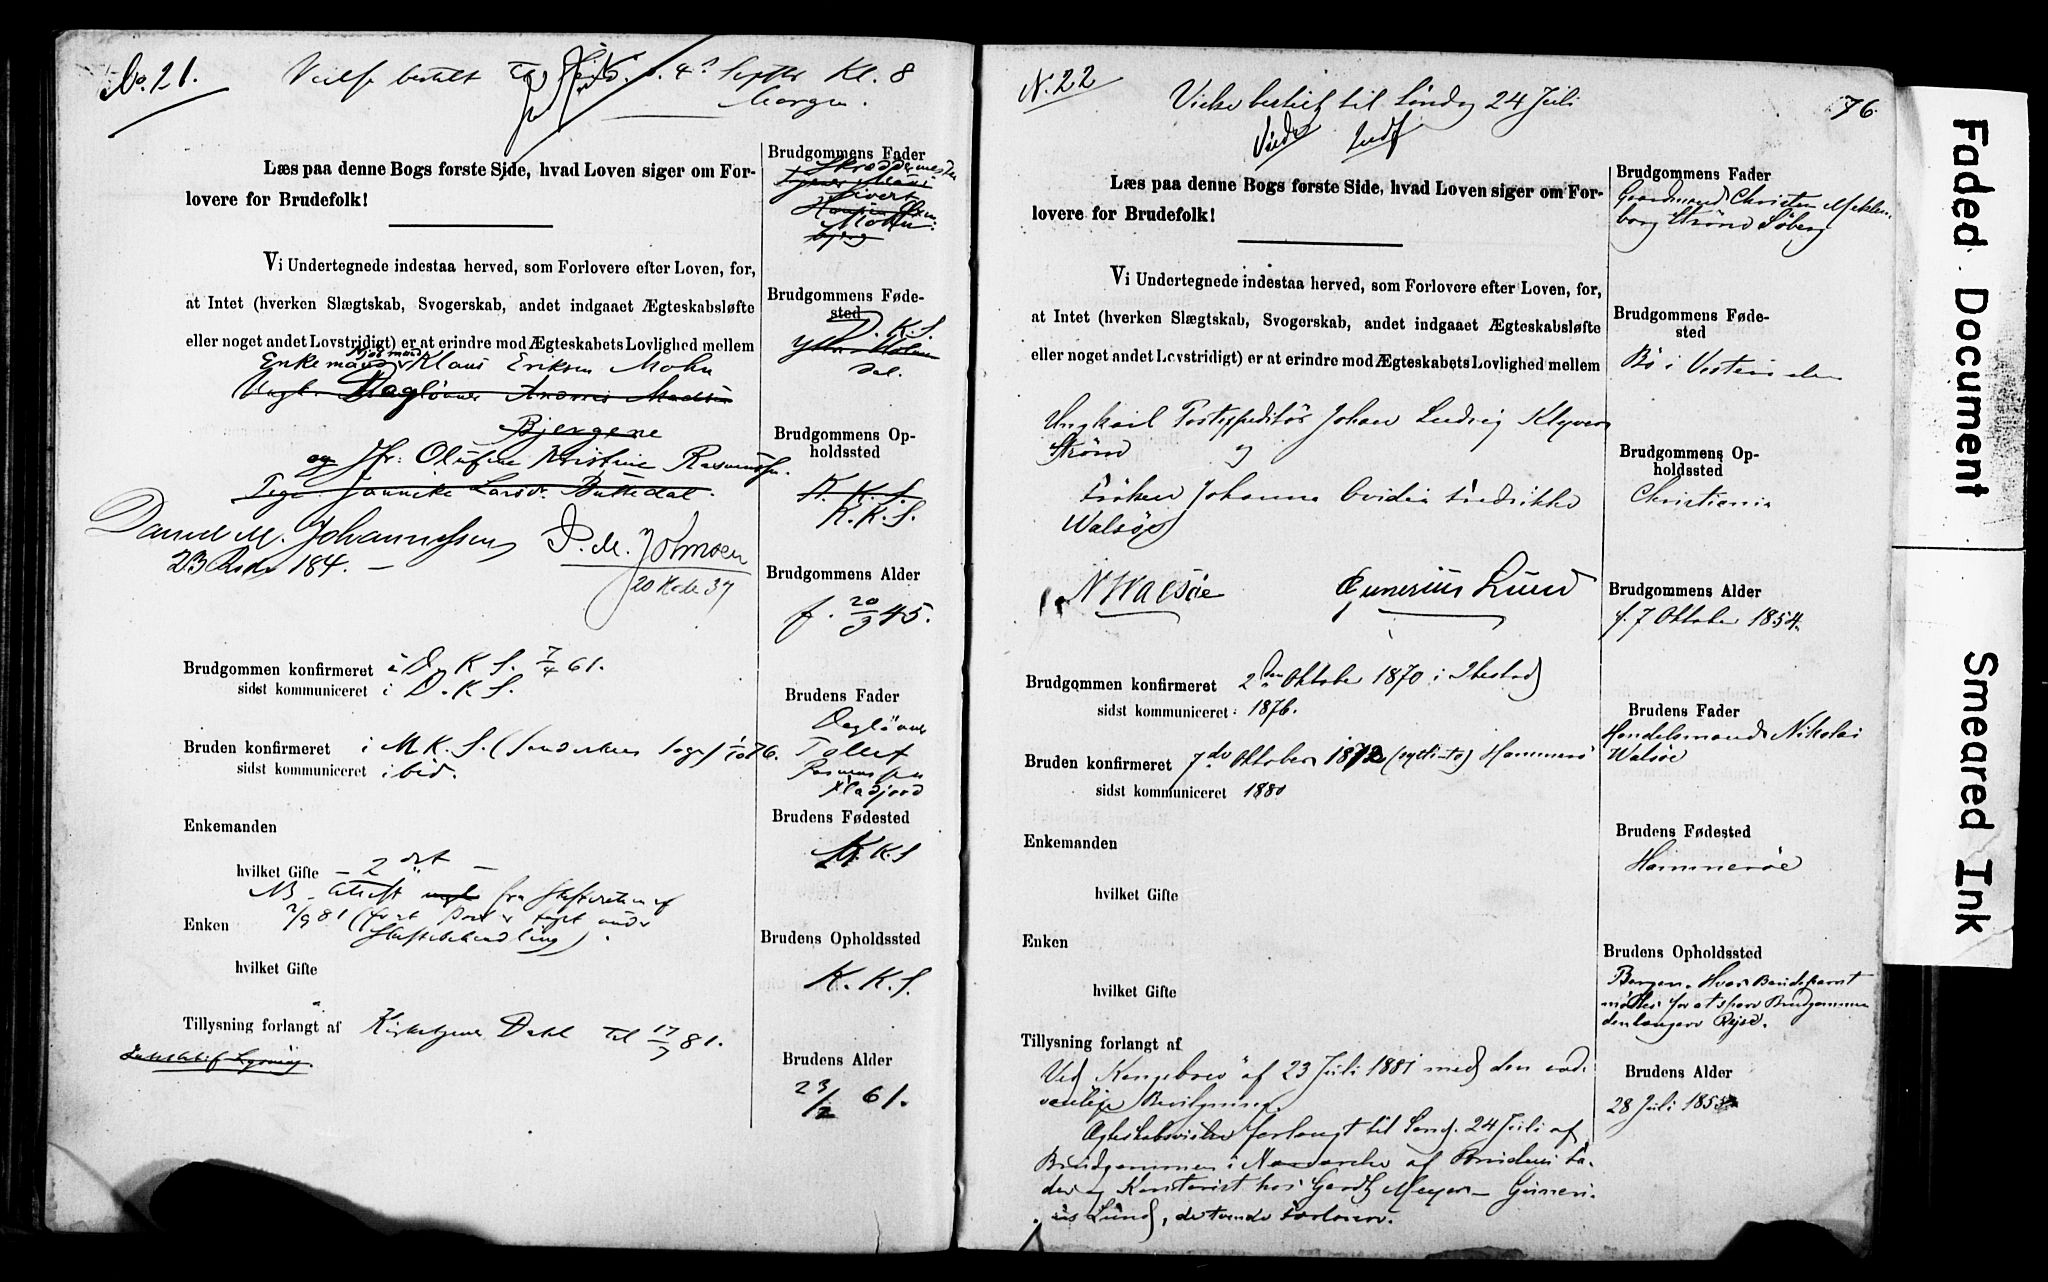 No. 21.
Vielse bestilt 4de Septbr Kl. 8
Morgen.
Læs paa denne Bogs første Side, hvad Loven siger om For-
lovere for Brudefolk!
Vi Undertegnede indestaa herved, som Forlovere efter Loven, for,
at Intet (hverken Slægtskab, Svogerskab, andet indgaaet Ægteskabsløfte
eller noget andet Lovstridigt) er at erindre mod Ægteskabets Lovlighed mellem
Enkemand Klaus Eriksen Mohn
Ungk. Dagløner Andreas Madsen
Bjergene
og Jfr: Olufine Kristine Rasmussen.
Pige Jannike Larsd. Buttedal.
Daniel M. Johannessen P. M. Johnsen
23 Rode 184. —
20 Rode 37
Brudgommen konfirmeret i D. K. S. 7/4 61.
sidst kommuniceret i D. K. S.
Bruden konfirmeret i M. K. S. 76.
sidst kommuniceret ibid.
Enkemanden
hvilket Gifte — 2det —
NB. Attest fra Skifteretten af
2/9 81
Skiftebehandling).
Enken
hvilket Gifte
Tillysning forlangt af Kirketjener Dahl til 17/7 81.
Brudgommens Fader
Skræddermester
Sivert
Mohn
Brudgommens Føde-
sted
D. K. S.
Brudgommens Op-
holdssted
K. K. S.
K. K. S.
Brudgommens Alder
f. 20/3 45.
Brudens Fader
Dagløner
Tollef
Rasmussen
Brudens Fødested
K. K. S
Brudens Opholdssted
K. K. S.
Brudens Alder
23/2 61.
N. 22
Vielse bestilt til Søndag 24 Juli
76.
Viede Indf
Læs paa denne Bogs første Side, hvad Loven siger om For-
lovere for Brudefolk!
Vi Undertegnede indestaa herved, som Forlovere efter Loven, for,
at Intet (hverken Slægtskab, Svogerskab, andet indgaaet Ægteskabsløfte
eller noget andet Lovstridigt) er at erindre mod Ægteskabets Lovlighed mellem
Ungkarl Postexpeditör Johan Ludvig Klyver
Strönd og
Fröken Johanna Ovidia Fredrikke
Walsöe
N Walsöe Gunerius Lund
Brudgommen konfirmeret 2den Oktober 1870 i Ibestad
sidst kommuniceret 1876.
Bruden konfirmeret 7de Oktober 1872 (sytti-to) Hammerö
sidst kommuniceret 1880
Enkemanden
hvilket Gifte
Enken
hvilket Gifte
Tillysning forlangt af
Ved Kongebrev af 23 Juli 1881 med den sæd-
vanlige Bevilgning.
Ægteskabsvielsen forlangt til Sönd. 24 Juli af
Brudgommen i Nærværelse af Brudens Fa-
der og Kontorist hos Gerdt Meyer – Guneri-
us Lund, de tvende Forlovere.
Brudgommens Fader
Gaardmand Christen Meklen-
borg Strönd Söberg
Brudgommens Føde-
sted
Bö i Vesteraalen
Brudgommens Op-
holdssted
Christiania
Brudgommens Alder
f. 7 Oktober 1854
Brudens Fader
Handelsmand Nikolai
Walsöe
Brudens Fødested
Hammeröe
Brudens Opholdssted
Bergen. Hvor Brudeparret
mödtes for at spare Brudgommen
den længere Rejse.
Brudens Alder
28 Juli 185
Faded Document
Smeared Ink